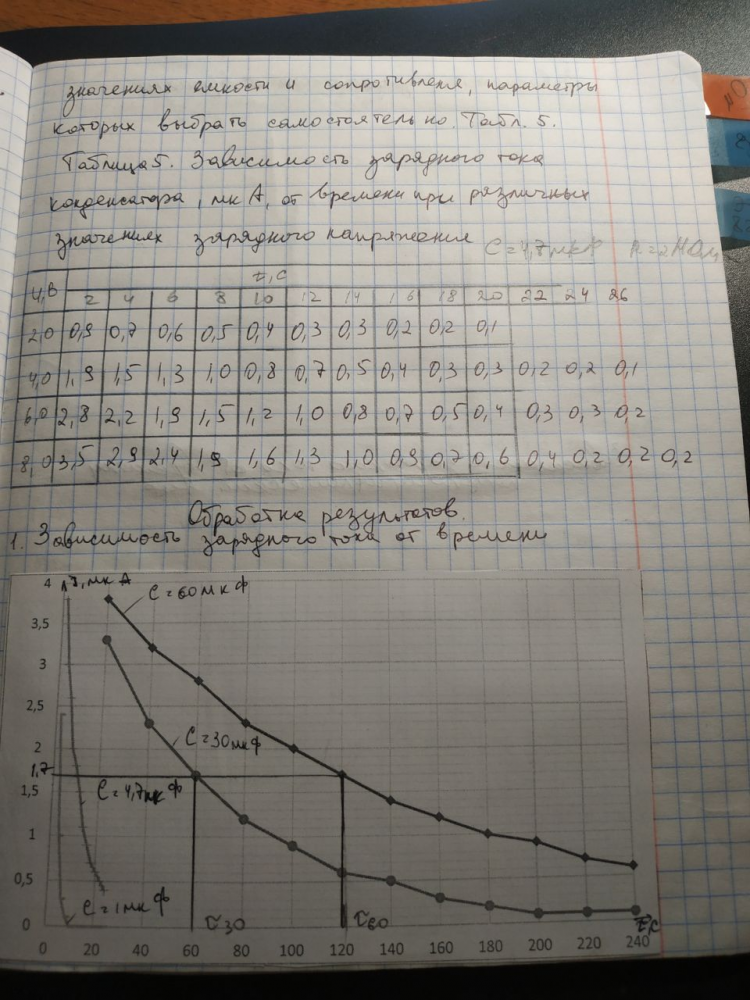 значениях емкости и сопротивления, параметры
которых выбрать самостоятельно. Табл. 5.
Таблица 5. Зависимость зарядного тока
конденсатора, мкА, от времени при различных
значениях зарядного напряжения C=4,7мкФ R=2МОм
U,В t,c
2 4 6 8 10 12 14 16 18 20 22 24 26
2,0 0,9 0,7 0,6 0,5 0,4 0,3 0,3 0,2 0,2 0,1
4,0 1,9 1,5 1,3 1,0 0,8 0,7 0,5 0,4 0,3 0,3 0,2 0,2 0,1
6,0 2,8 2,2 1,9 1,5 1,2 1,0 0,8 0,7 0,5 0,4 0,3 0,3 0,2
8,0 3,5 2,9 2,4 1,9 1,6 1,3 1,0 0,9 0,7 0,6 0,4 0,2 0,2 0,2
Обработка результатов.
1. Зависимость зарядного тока от времени
4 I, мкА C=60мкФ
3,5
3
2,5
2 C=30мкФ
1,7
1,5 C=4,7мкФ
1
0,5
C=1мкФ
0 τ30 τ60 t,c
0 20 40 60 80 100 120 140 160 180 200 220 240